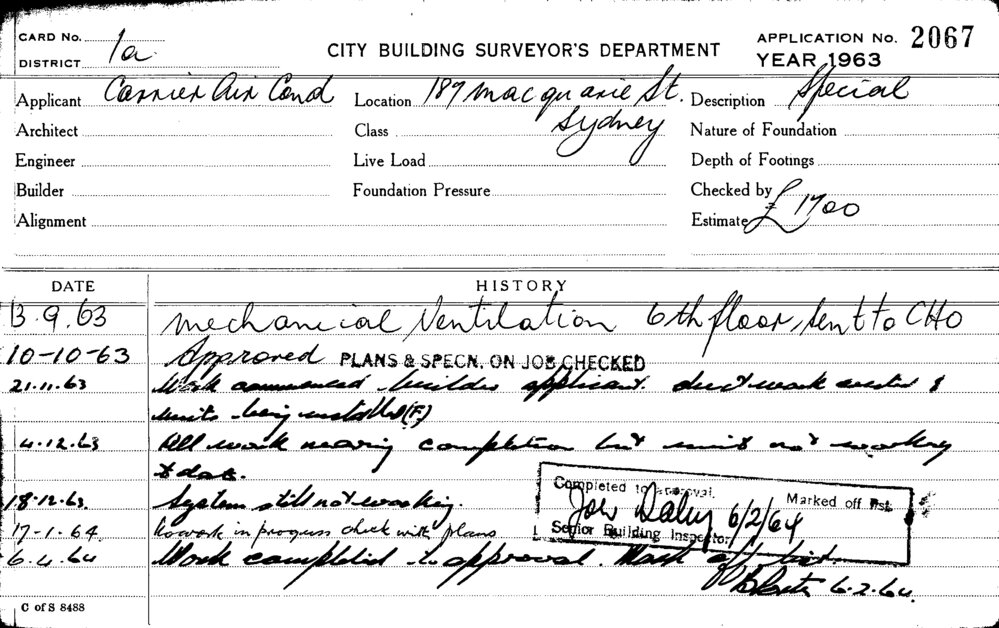 CARD No.
DISTRICT 1a
CITY BUILDING SURVEYOR'S DEPARTMENT
APPLICATION No. 2067
YEAR 1963
Applicant Carrier Air Cond
Location 187 Macquarie St. Sydney
Description Special
Architect
Class
Nature of Foundation
Engineer
Live Load
Depth of Footings
Builder
Foundation Pressure
Checked by
Alignment
Estimate £1700
DATE
HISTORY
13.9.63 Mechanical Ventilation 6th floor, sent to CHO
10-10-63 Approved PLANS & SPECN. ON JOB CHECKED
21.11.63 Work commenced builder applicant. duct work erected &
units being installed (F.)
4.12.63 All work nearing completion but unit not working
to date.
18.12.63. System still not working.
17-1-64. No work in progress check with plans
6.2.64 Work completed to approval. Mark off list.
6.2.64.
Completed to approval.
Marked off list.
Joe Daley 6/2/64
Senior Building Inspector
C of S 8488